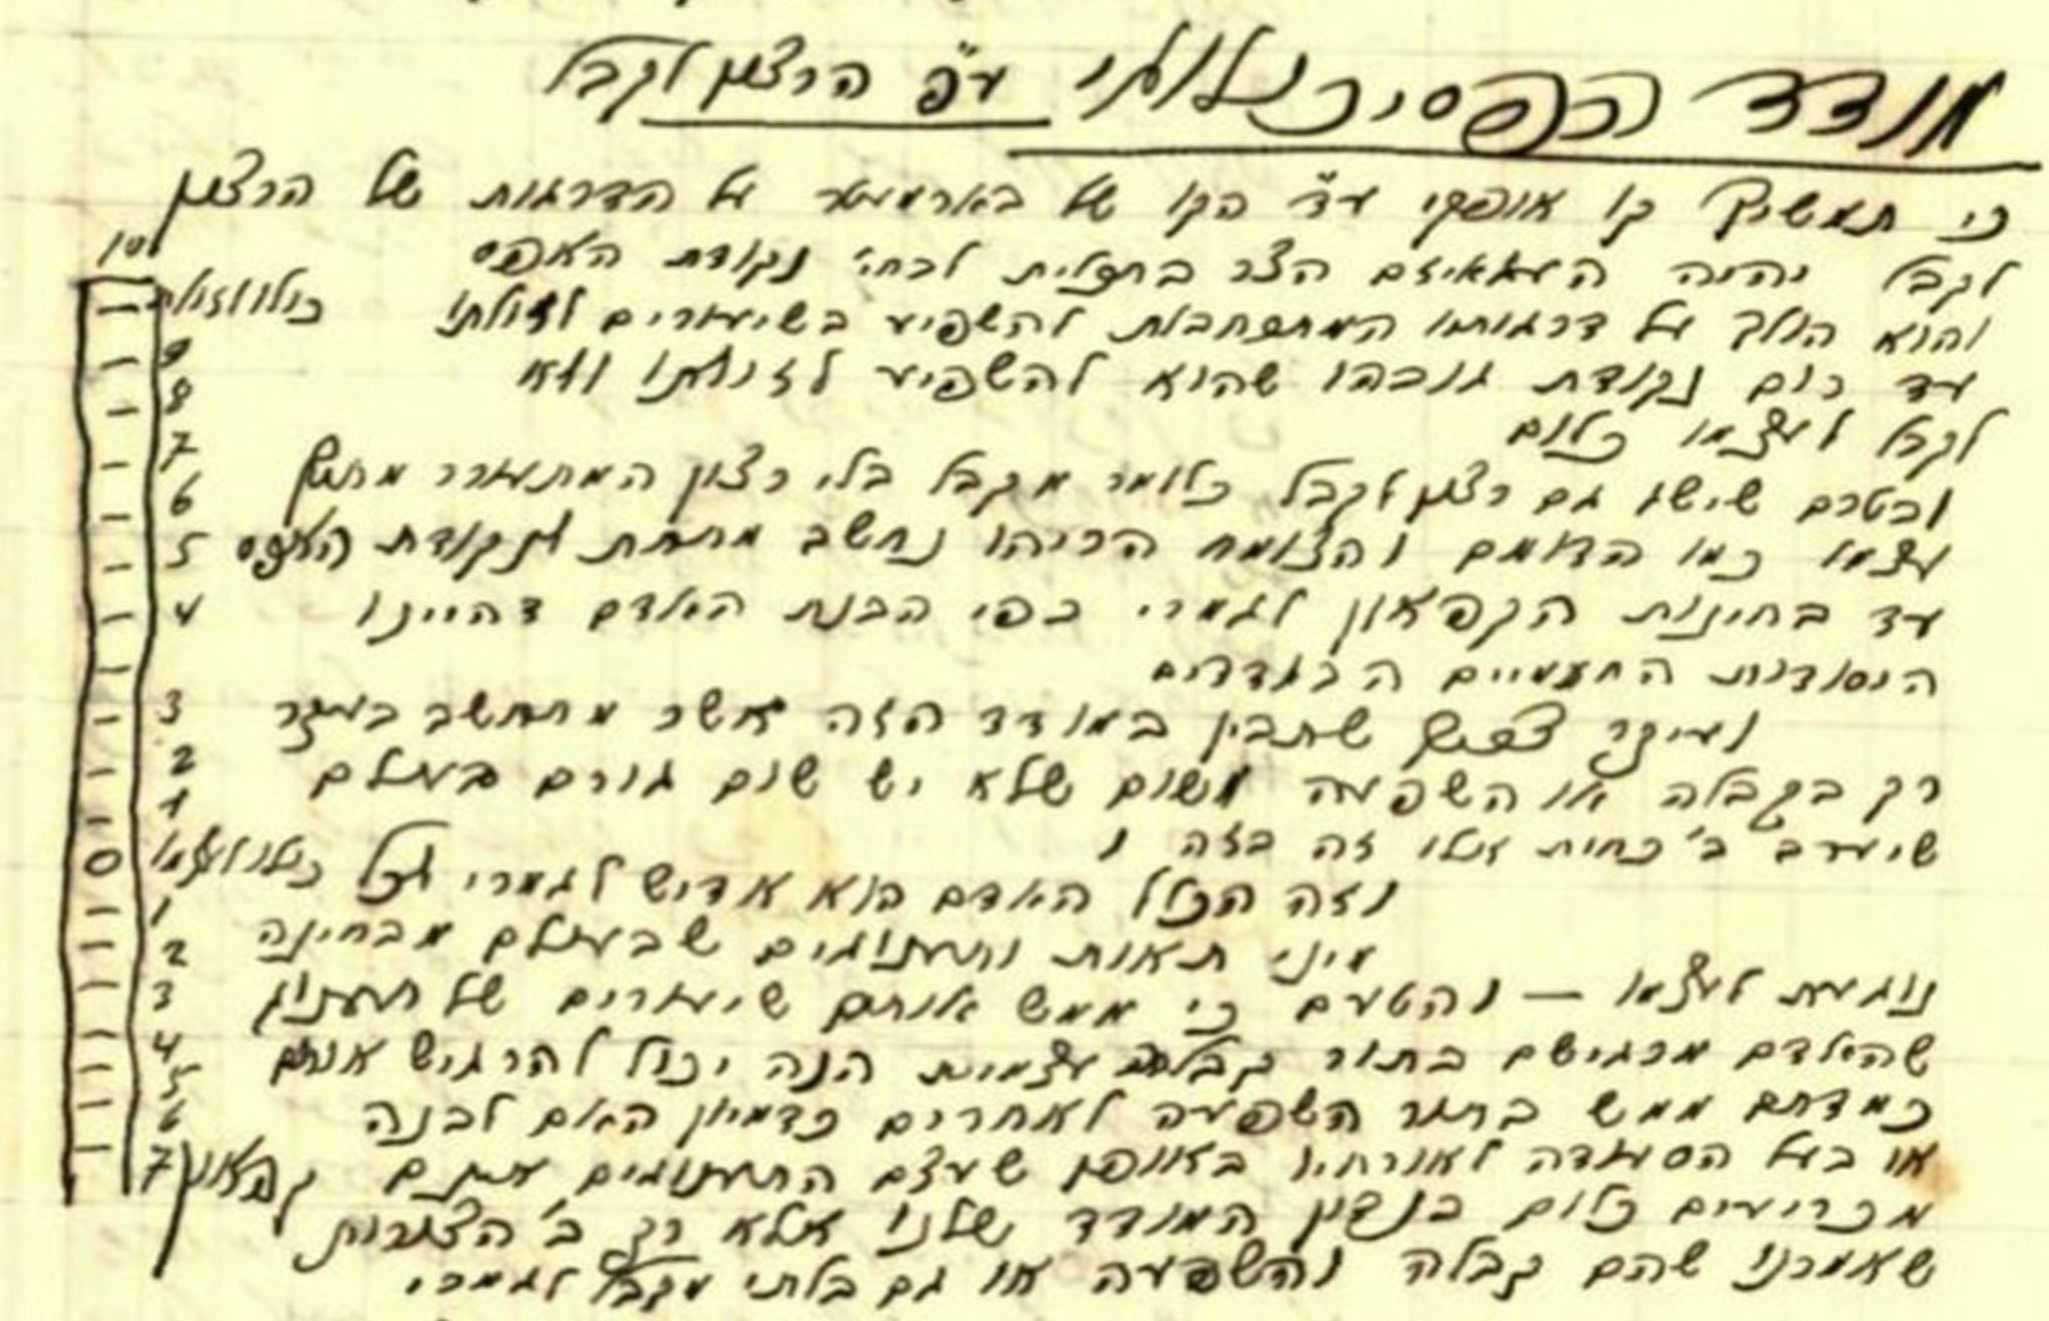 מודד הפסיכולוגי ע"פ הרצון לקבל
כי תמשיך קו אופקי ע"ד הקו של בארומטר על הדרגות של הרצון
לקבל יהיה העגאיזם הצר בתכלית לבחי' נקודת האפס
והוא הולך על דרגותיו המתרחבות להשפיע בשיעורים לזולתו
עד רום נקודת גובהו שהוא להשפיע לזולתו ולא
לקבל לעצמו כלום
ובטרם שישג גם רצון לקבל כלומר מקבל בלי רצון המתעורר מתוך
עצמו כמו הדומם והצומח הריהו נחשב מתחת לנקודת האפס
עד בחינת הקפאון לגמרי כפי הבנת האדם דהיינו
היסודות החמיים הבודדים
ועיקר צריך שתבין במודד הזה אשר מתחשב בעיקר
רק בקבלה או השפעה משום שלא יש שום גורם בעולם
שיערב ב' כחות אלו זה בזה ו
וזה הכלל האדם הוא אדיש לגמרי לכל
מיני תאות ותענוגים שבעולם מבחינה
נוגעת לעצמו — והטעם כי ממש אותם שיעורים של תענוג
שהאדם מרגישם בתור קבלה עצמית הנה יכול להרגיש אותם
כמדתם ממש בתור השפעה לאחרים כדמיון האם לבנה
או בעל הסעודה לאורחיו באופן שעצם התענוגים עינם
מכריעים כלום בנדון המודד שלנו אלא רק ב' הצורות
שאמרנו שהם קבלה והשפעה או גם בלתי מקבל לגמרי
10
כולו לזולתו
9
8
7
6
5
4
3
2
1
0 כולו לעצמו
1
2
3
4
5
6
7 קפאון